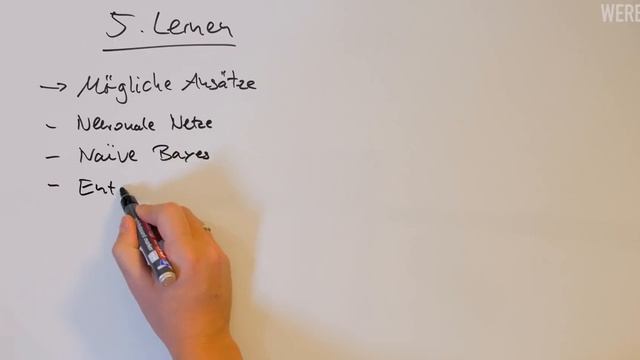 WERE
5. Lernen
→ Mögliche Ansätze
- Neuronale Netze
- Naïve Bayes
- Ent